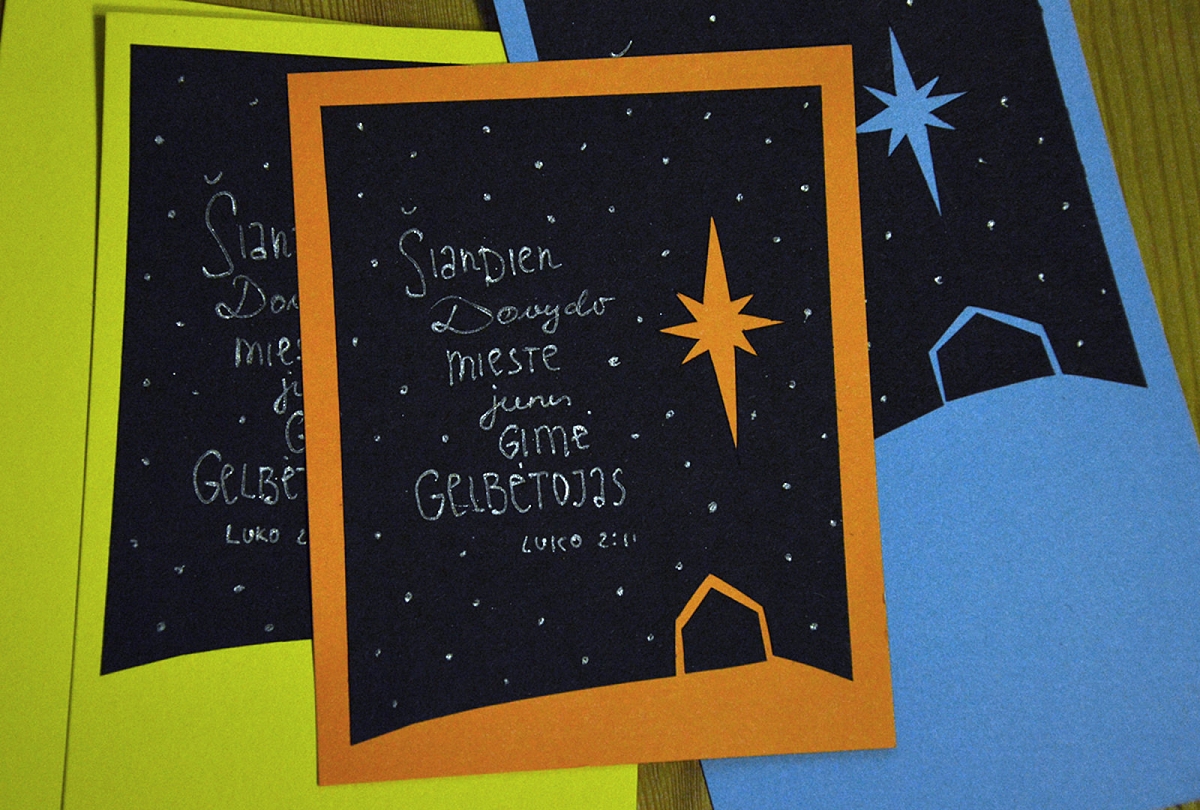 Šian
Dov
mies
ju
G
GELBĖT
LUKO 2
ŠianDien
Dovydo
mieste
jums
GIMĖ
GELBĖTOJAS
LUKO 2:11